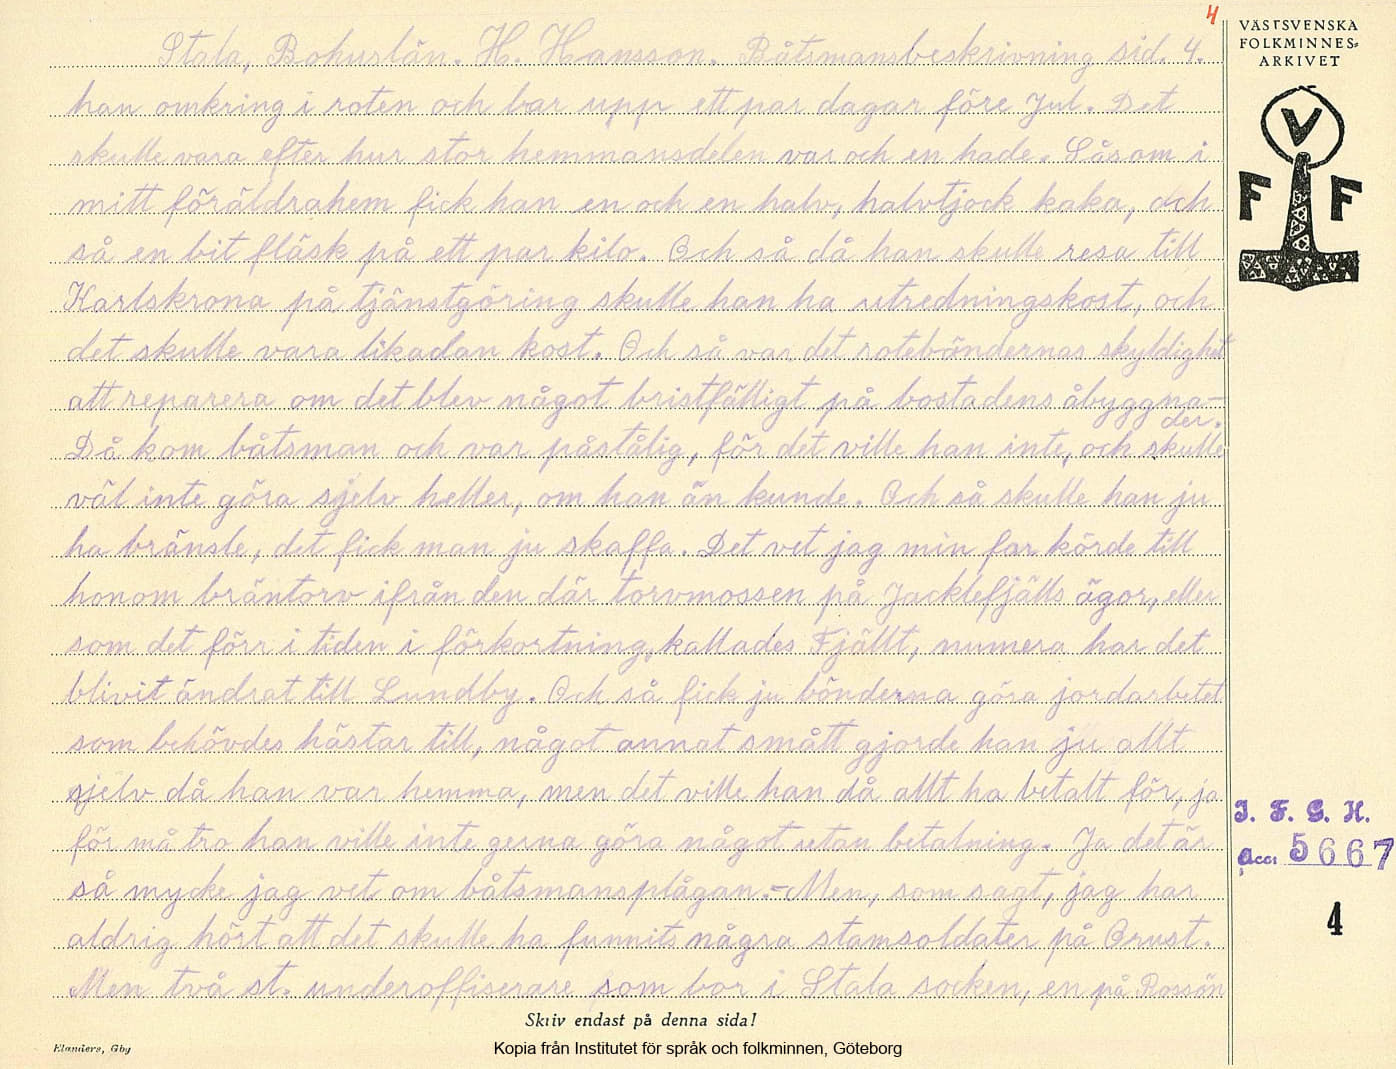 4
Stala, Bohuslän. H. Hansson. Båtsmansbeskrivning sid. 4.
han omkring i roten och bar upp ett par dagar före Jul. Det
skulle vara efter hur stor hemmansdelen var och en hade. Såsom i
mitt föräldrahem fick han en och en halv, halvtjock kaka, och
så en bit fläsk på ett par kilo. Och så då han skulle resa till
Karlskrona på tjänstgöring skulle han ha utredningskost, och
det skulle vara likadan kost. Och så var det roteböndernas skyldighet
att reparera om det blev något bristfälligt på bostadens åbyggna-
der.
Då kom båtsman och var påstålig, för det ville han inte, och skulle
väl inte göra sjelv heller, om han än kunde. Och så skulle han ju
ha bränsle, det fick man ju skaffa. Det vet jag min far körde till
honom bräntorv ifrån den där torvmossen på Jacklefjälls ägor, eller
som det förr i tiden i förkortning, kallades Fjällt, numera har det
blivit ändrat till Lundby. Och så fick ju bönderna göra jordarbetet
som behövdes hästar till, något annat smått gjorde han ju allt
sjelv då han var hemma, men det ville han då allt ha betalt för, ja
för må tro han ville inte gerna göra något utan betalning. Ja det är
så mycke jag vet om båtsmansplågan.- Men, som sagt, jag har
aldrig hört att det skulle ha funnits några stamsoldater på Orust.
Men två st. underoffiserare som bor i Stala socken, en på Rossön
Skriv endast på denna sida!
Elanders, Gbg
Kopia från Institutet för språk och folkminnen, Göteborg
VÄSTSVENSKA
FOLKMINNES-
ARKIVET
V
F F
I. F. G. H.
acc: 5667
4